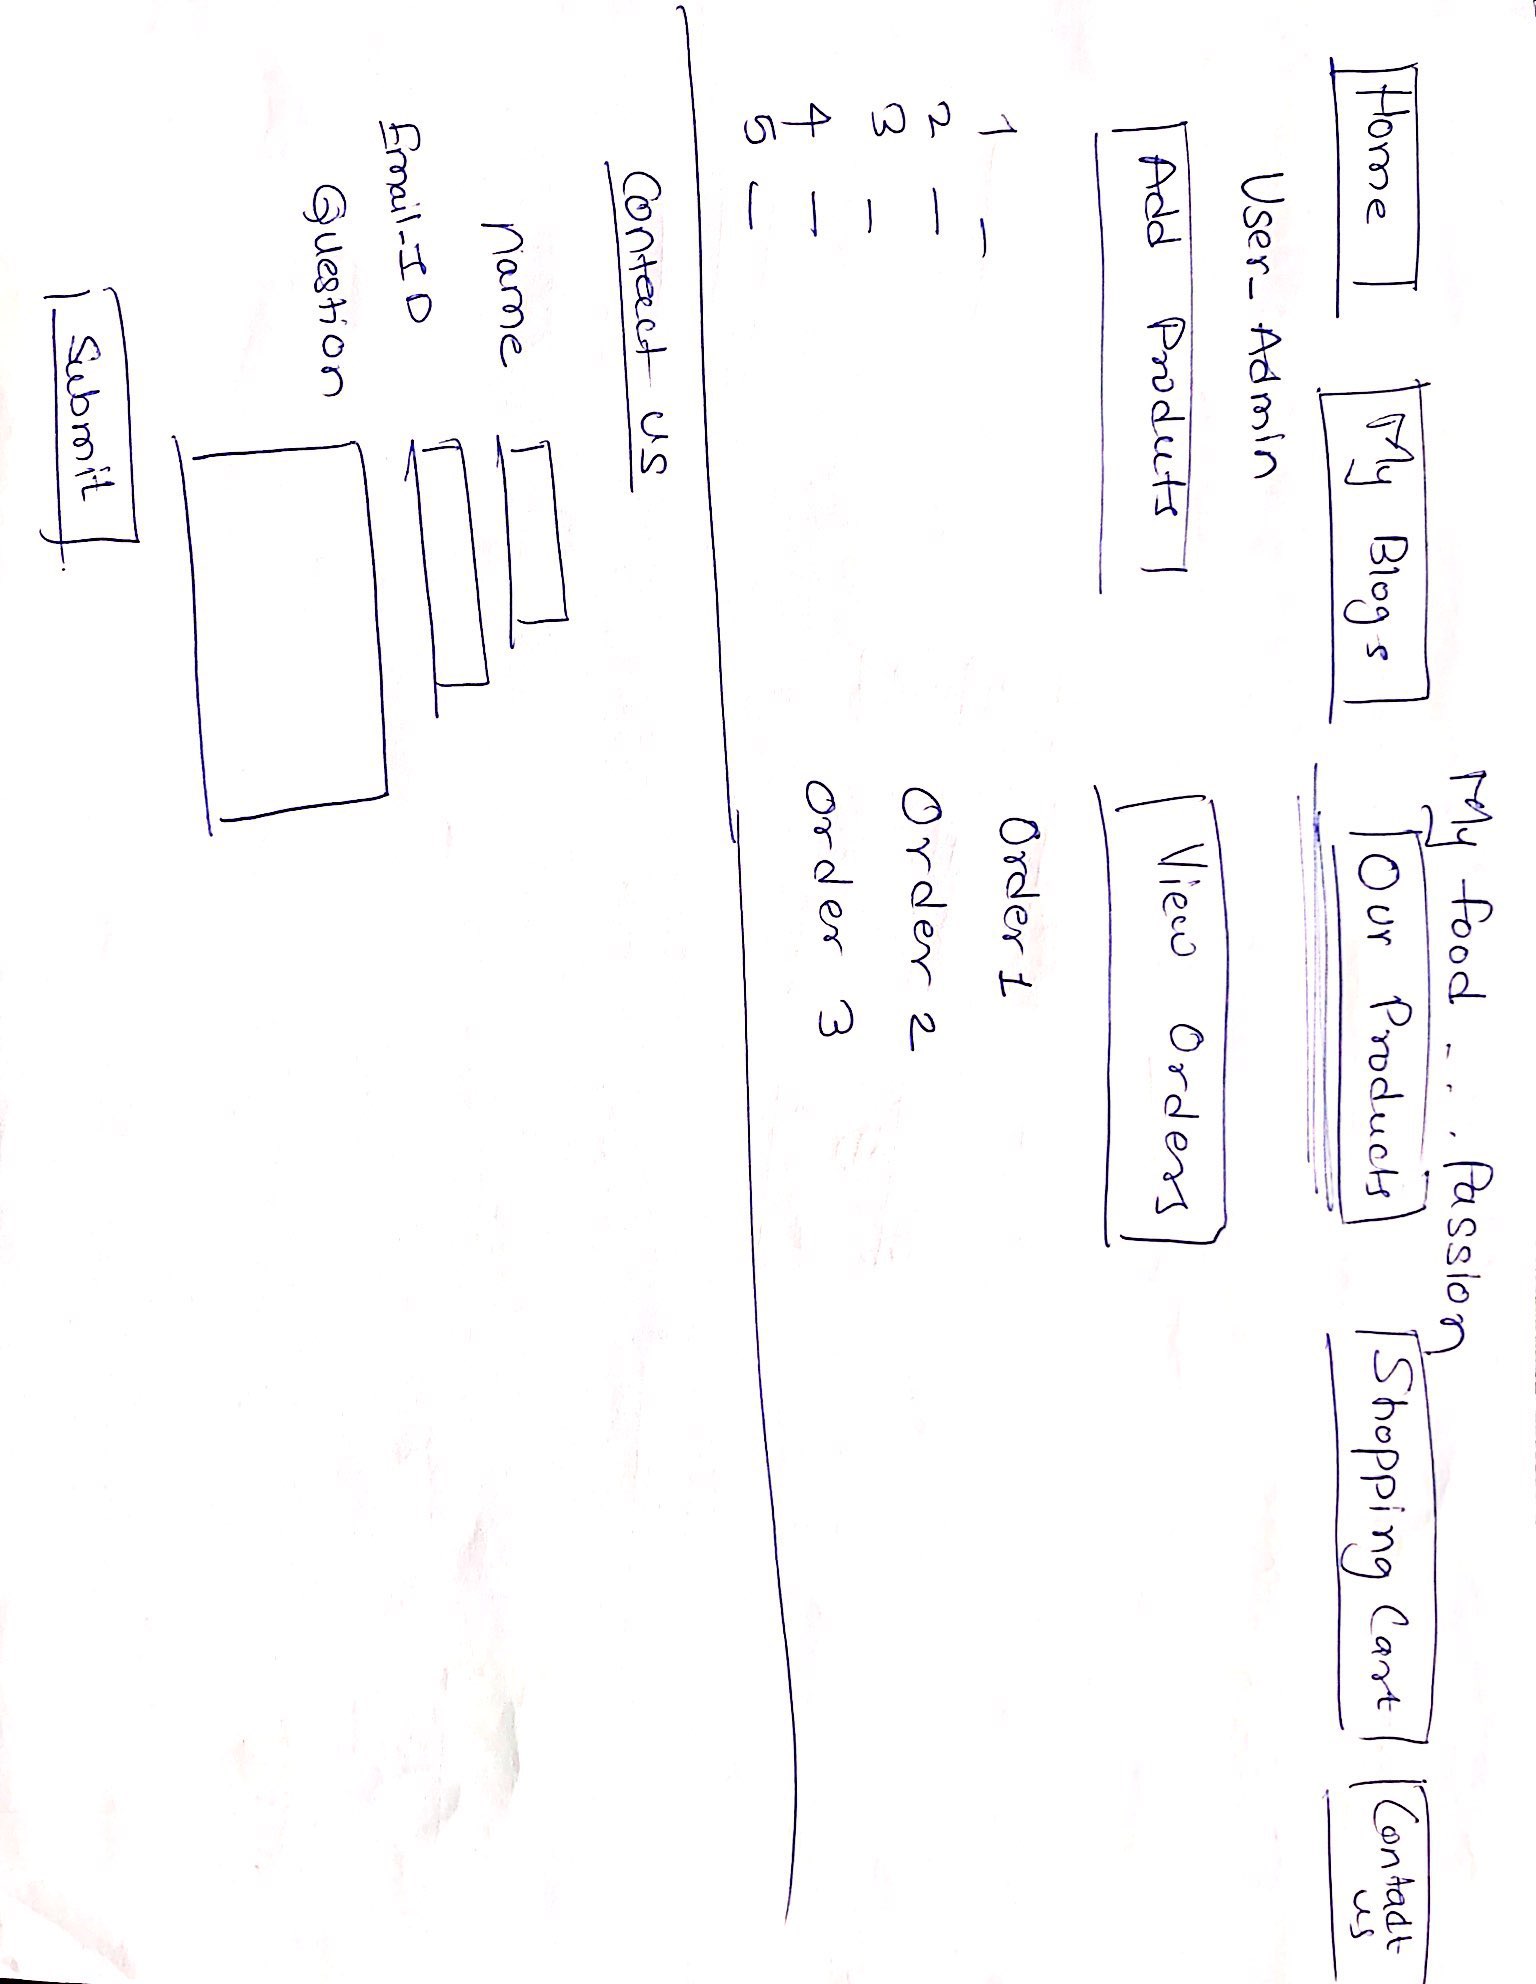 My food .... Passion
Home My Blogs Our Products Shopping Cart Contact us
User-Admin
Add Products View Orders
1 - Order 1
2 -
3 - Order 2
4 - Order 3
5 -
Contact us
Name
Email-ID
Question
Submit